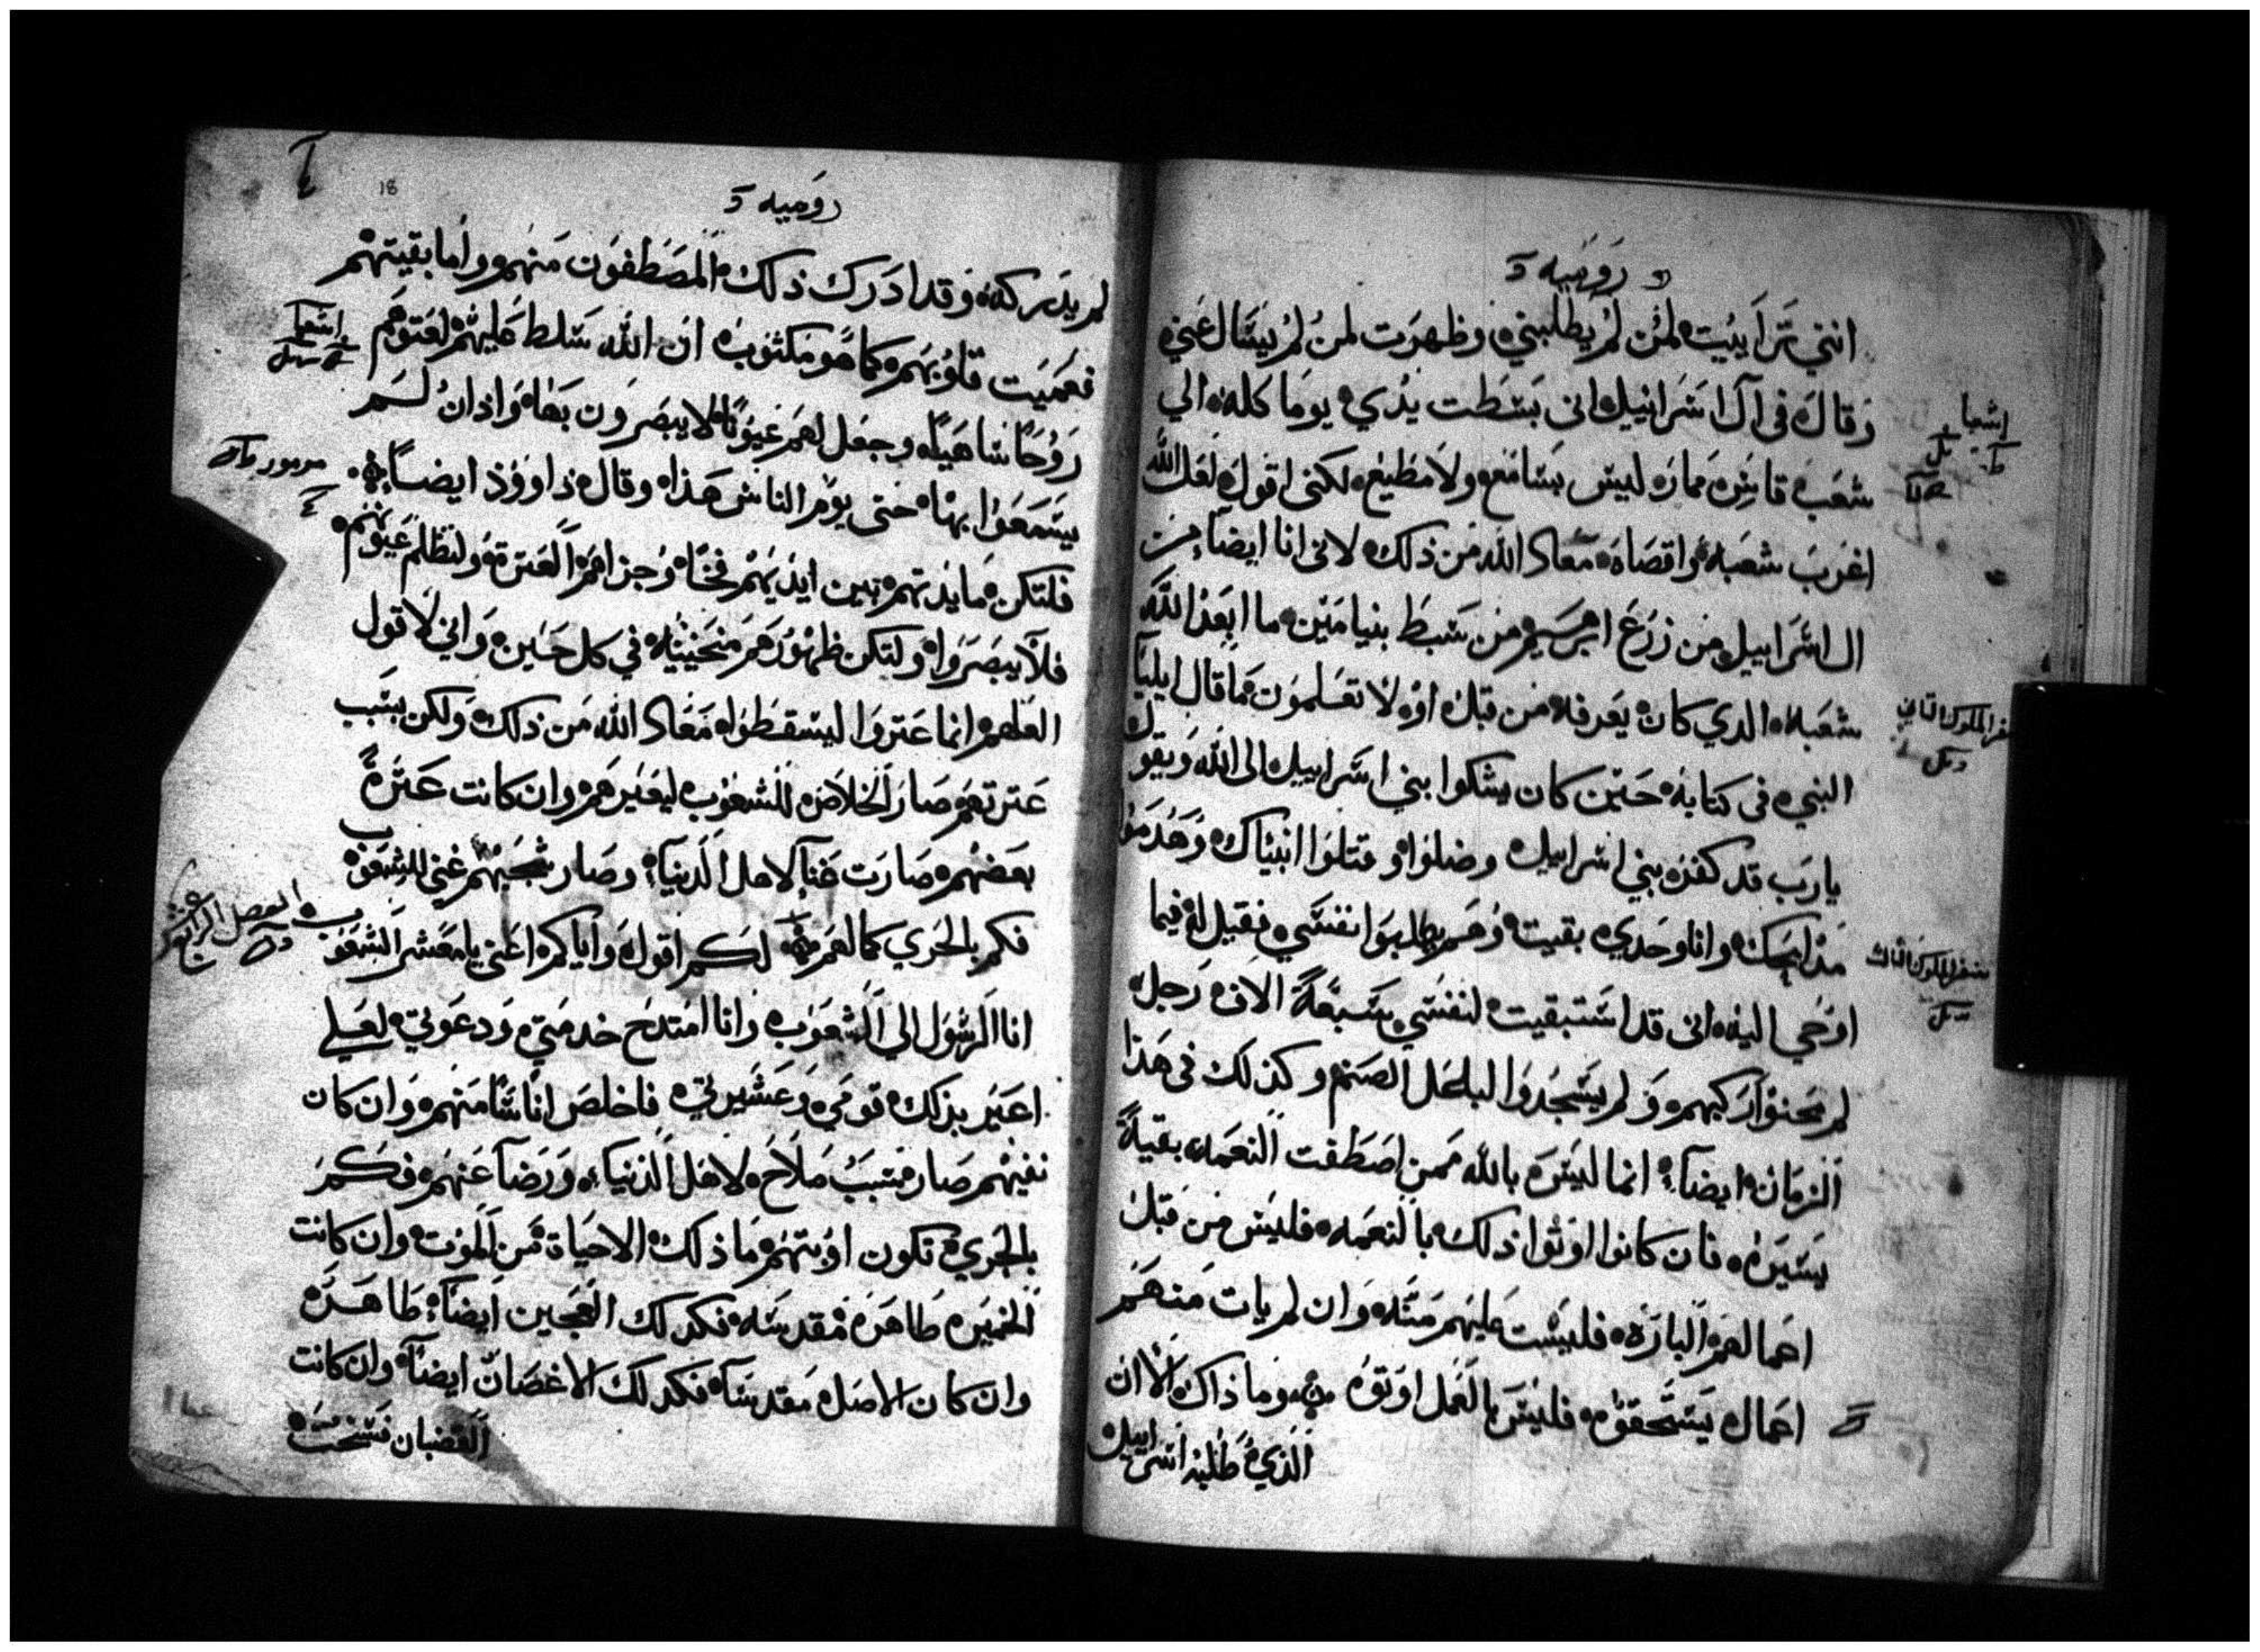 روميه
انني تراييت لمن لم يطلبني وظهرت لمن لم يسال عني
وقال في آل اسراييل اني بسطت يدي يوما كله الي
شعب قاس ممار ليس بسامع ولا مطيع لكني اقول لعل الله
اغرب شعبه واقصاه معاد الله من ذلك لاني انا ايضا من
ال اسراييل من زرع ابرهيم من سبط بنيامين ما ابعد الله
شعبه الدي كان يعرفه من قبل او لا تعلمون ما قال ايليا
النبي في كتابه حين كان يشكوا بني اسراييل الى الله ويقول
يارب قد كفر بني اسراييل وضلوا وقتلوا انبياك وهدموا
مذابحك وانا وحدي بقيت وهم يطلبوا نفسي فقيل له فيما
اوحي اليه اني قد استبقيت لنفسي سبعة الاف رجل
لم يحنوا ركبهم ولم يسجدوا لباعل الصنم وكذلك في هذا
الزمان ايضا انما ليس بالله ممن اصطفت النعمه بقية
يسيره فان كانوا اوتوا ذلك بالنعمه فليس من قبل
اعمالهم الباره فليست عليهم منه وان لم يات منهم
اعمال يستحقوه فليس بالعمل اوتوه وما ذاك الا ان
الذي طلبه اسراييل
اشعيا
سفر الملوك الثاني
سفر الملوك الثالث
روميه
18
لم يدركه وقد ادرك ذلك المصطفون منهم واما بقيتهم
فعميت قلوبهم كما هو مكتوب ان الله سلط عليهم لعتوهم
روحا ساهيه وجعل لهم عيونا لا يبصرون بها واذان لم
يسمعوا بها حتى يوم الناس هذا وقال داوود ايضا
فلتكن مايدتهم بين ايديهم فخا وجزاهم العترة ولتظلم عيونهم
فلا يبصروا ولتكن ظهورهم منحنيه في كل حين واني لاقول
العلهم انما عتروا ليسقطوا معاد الله من ذلك ولكن بسبب
عترتهم صار الخلاص للشعوب ليغيرهم وان كانت عترة
بعضهم صارت غنا لاهل الدنيا وصار شجبهم غنى للشعوب
فكم بالحري كمالهم لكم اقول واياكم اعني يا معشر الشعوب
انا الرسول الي الشعوب وانا امتدح خدمتي ودعوتي لعلي
اعير بذلك قومي وعشيرتي فاخلص اناسا منهم وان كان
نفيهم صار سبب صلاح لاهل الدنيا ورضا عنهم فكم
بالحري تكون اوبتهم ما ذلك الا حياة من الموت وان كانت
الخميره طاهره مقدسه فكذلك العجين ايضا طاهره
وان كان الاصل مقدسا فكذلك الاغصان ايضا وان كانت
القضبان فسخت
اشعيا
مزمور
الفصل الرابع عشر